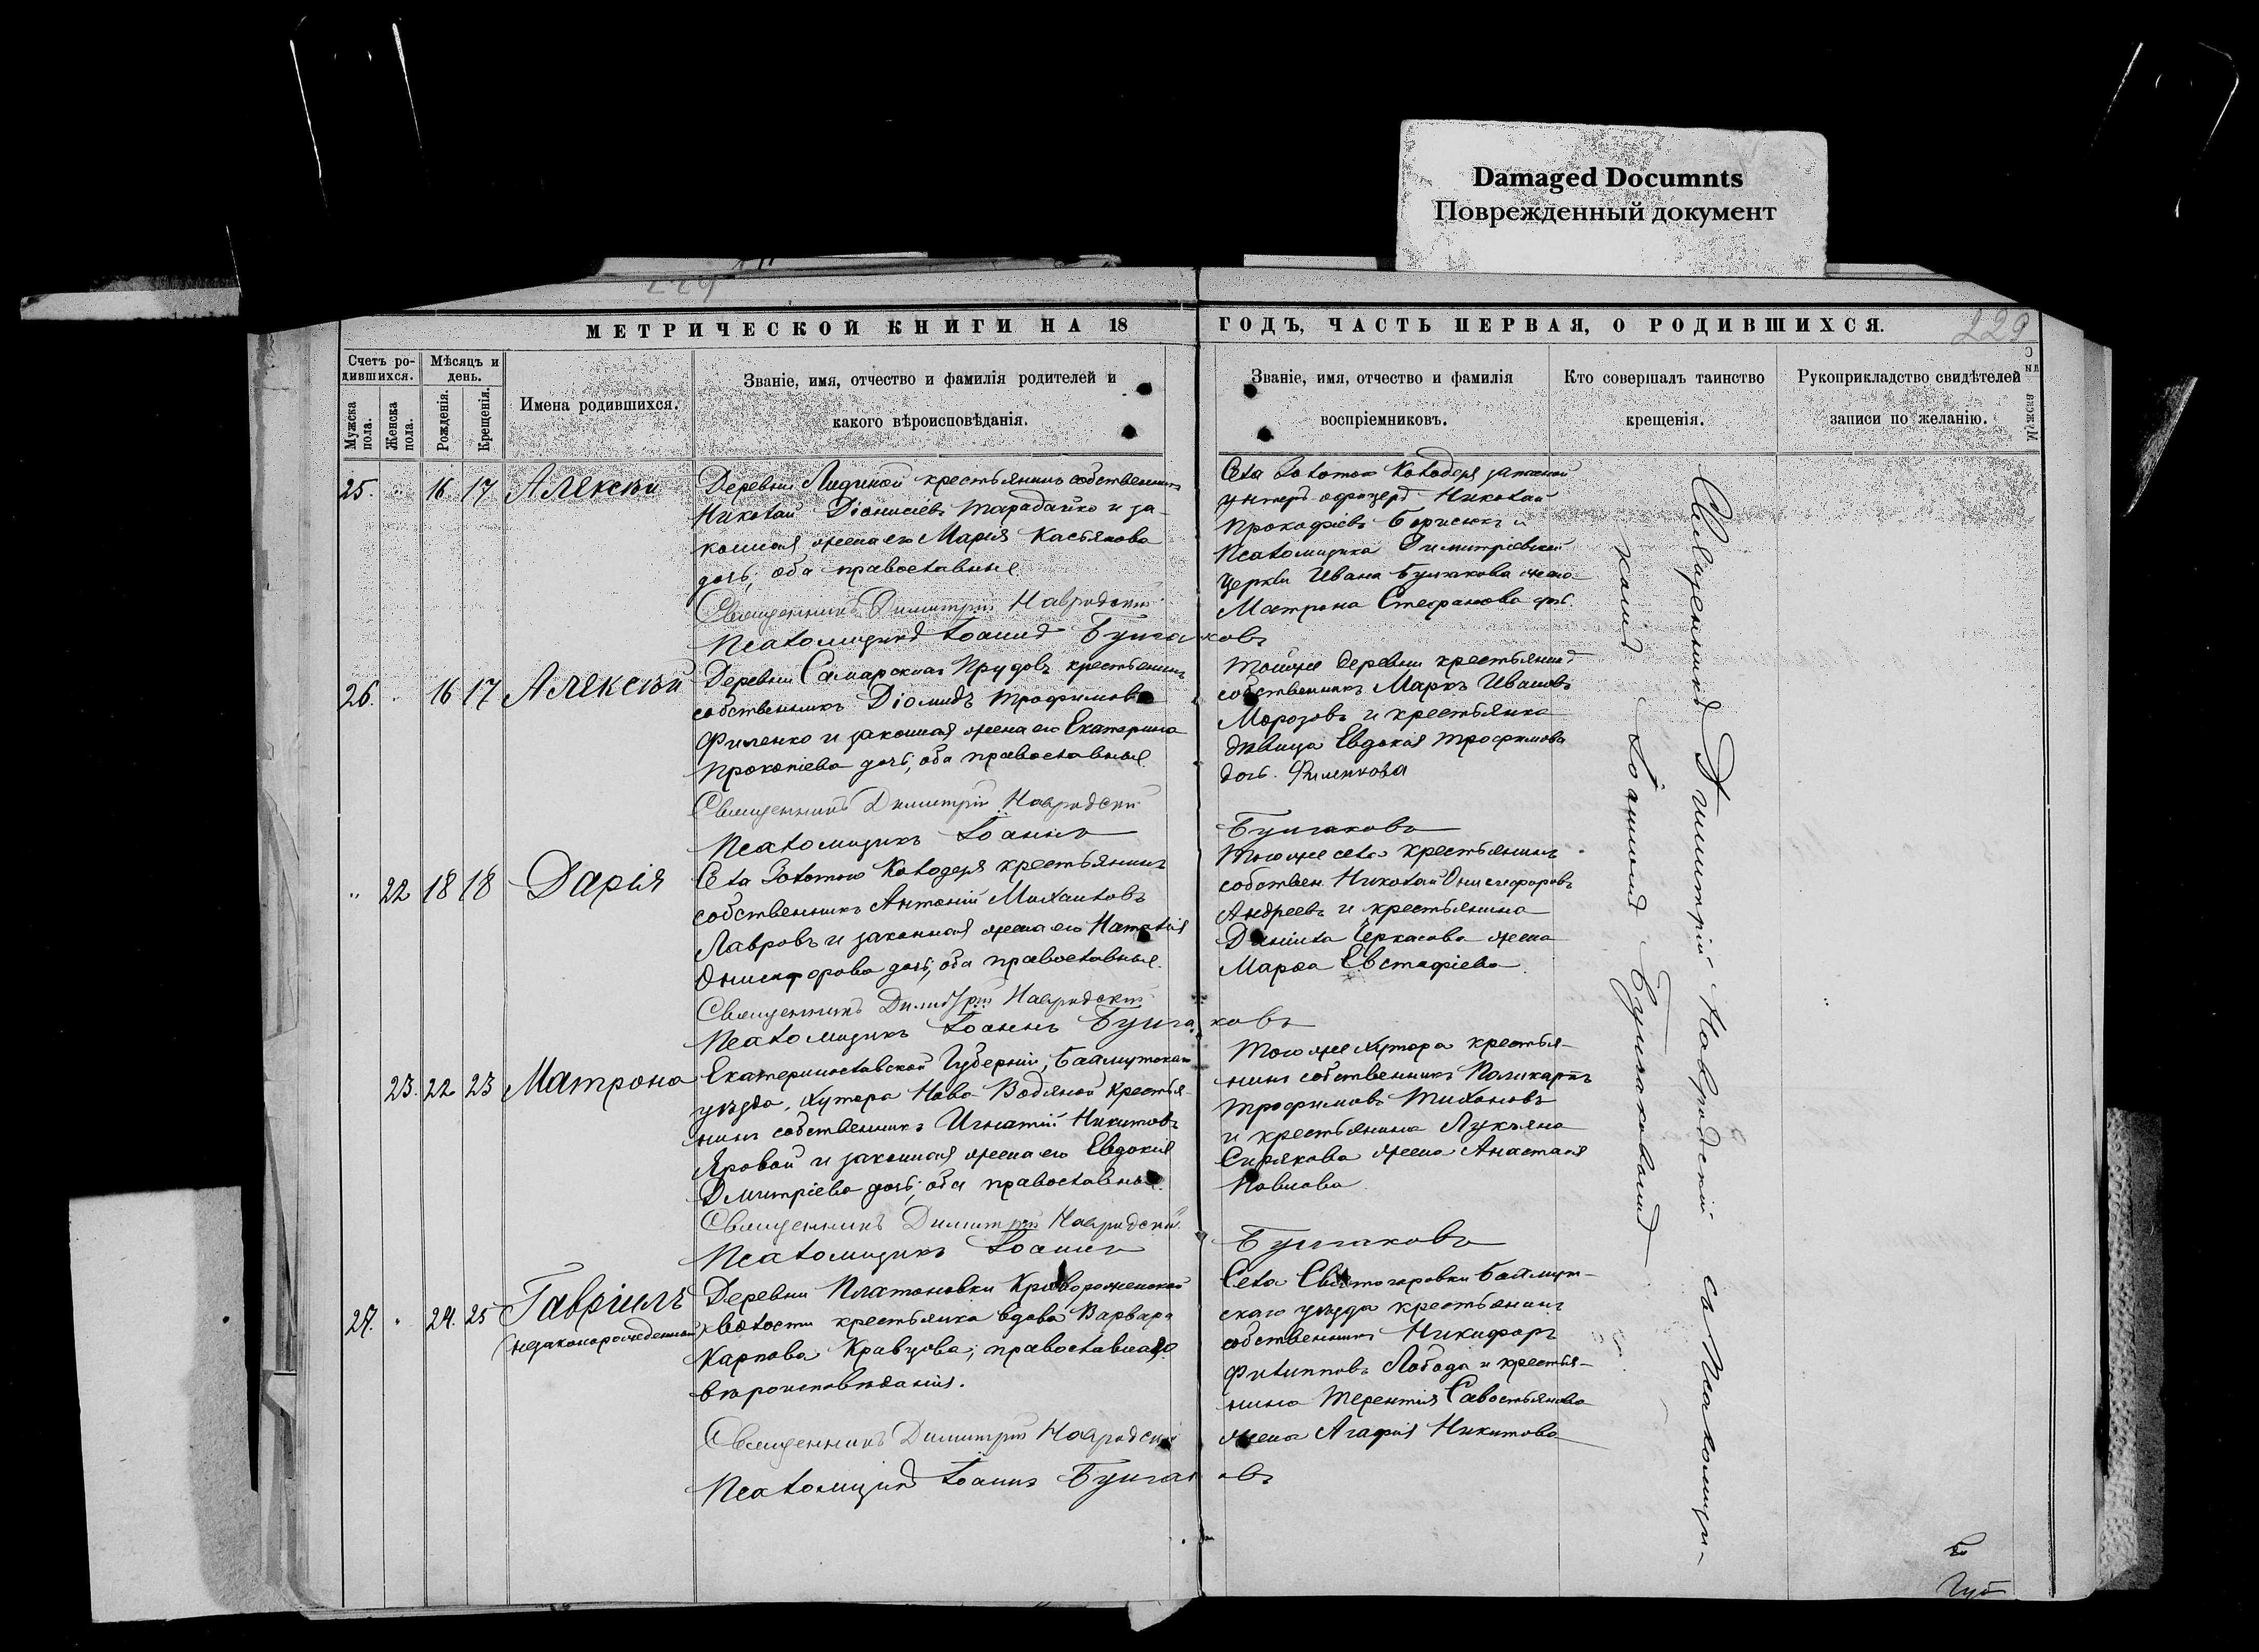 Damaged Documnts
Поврежденный документ
229
МЕТРИЧЕСКОЙ КНИГИ НА 18 ГОДЪ, ЧАСТЬ ПЕРВАЯ, О РОДИВШИХСЯ.
229
Счетъ ро-
дившихся.
Мужска
пола.
Женска
пола.
Мѣсяцъ и
день.
Рожденія.
Крещенія.
Имена родившихся.
Званіе, имя, отчество и фамилія родителей и
какого вѣроисповѣданія.
Званіе, имя, отчество и фамилія
воспріемниковъ.
Кто совершалъ таинство
крещенія.
Рукоприкладство свидѣтелей
записи по желанію.
25. " 16 17 Алексѣй
Деревни Лидиной крестьянинъ собственникъ
Николай Діонисіевъ Тарадайко и за-
конная жена его Марія Касьянова
дочь, оба православные
Священникъ Димитрій Навродскій
Псаломщикъ Іоаннъ Булгаковъ
Села Золотого Колодезя запасной
унтеръ офицеръ Николай
Прокофіевъ Борисюкъ и
Псаломщика Димитріевской
Церкви Ивана Булгакова жена
Матрона Стефанова доч.
26. " 16 17 Алексѣй
Деревни Самарскихъ Прудовъ крестьянинъ
собственникъ Діомидъ Трофимовъ
Филенко и законная жена его Екатерина
Прокопіева дочь, оба православные.
Священникъ Димитрій Навродскій
Псаломщикъ Іоаннъ Булгаковъ
Тойже деревни крестьянинъ
собственникъ Маркъ Ивановъ
Морозовъ и крестьянка
дѣвица Евдокія Трофимова
дочь. Филенкова
" 22 18 18 Дарія
Села Золотого Колодезя крестьянинъ
собственникъ Антоній Михаиловъ
Лавровъ и законная жена его Наталія
Онисифорова дочь, оба православные.
Священникъ Димитрій Навродскій
Псаломщикъ Іоаннъ Булгаковъ
Тогоже села крестьянинъ
собствен. Николай Онисифоровъ
Андреевъ и крестьянина
Даніила Черкасова жена
Марѳа Евстафіева
23. 22 23 Матрона
Екатеринославской Губерніи, Бахмутскаго
уѣзда, Хутора Ново Водяной крестья-
нинъ собственникъ Игнатій Никитовъ
Яровой и законная жена его Евдокія
Дмитріева дочь, оба православные.
Священникъ Димитрій Навродскій
Псаломщикъ Іоаннъ Булгаковъ
Тогоже Хутора крестья-
нинъ собственникъ Поликарпъ
Трофимовъ Тихоновъ
и крестьянина Лукьяна
Сирякова жена Анастасія
Павлова
27. " 24. 25 Гавріилъ
(незаконорожденный)
Деревни Платоновки Криворожской
волости крестьянка вдова Варвара
Карпова Кравцова, православнаго
вѣроисповѣданія.
Священникъ Димитрій Навродскій
Псаломщикъ Іоаннъ Булгаковъ
Села Святогоровки Бахмут-
скаго уѣзда крестьянинъ
собственникъ Никифоръ
Филипповъ Лобода и крестья-
нина Терентія Савостьянова
жена Агафія Никитова
Священникъ Димитрій Навродскій съ Псаломщи-
комъ Іоанномъ Булгаковымъ